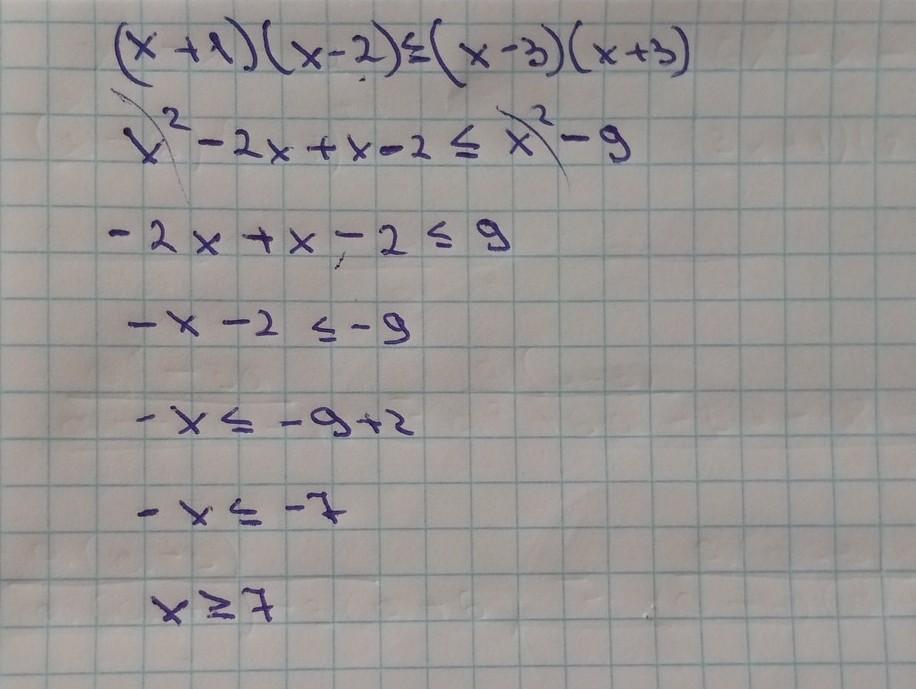 (x+1)(x-2)≤(x-3)(x+3)
x²-2x+x-2≤x²-9
-2x+x-2≤9
-x-2≤-9
-x≤-9+2
-x≤-7
x≥7